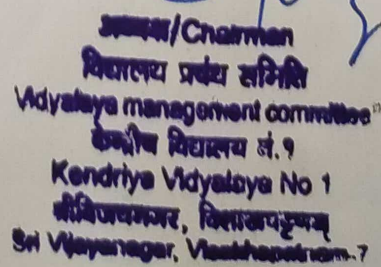 अध्यक्ष/Chairman
विद्यालय प्रबंध समिति
Vidyalaya management committee
केन्द्रीय विद्यालय नं.१
Kendriya Vidyalaya No 1
श्रीविजयनगर, विशाखपट्टणम्
Sri Vijayanagar, Visakhapatnam-7